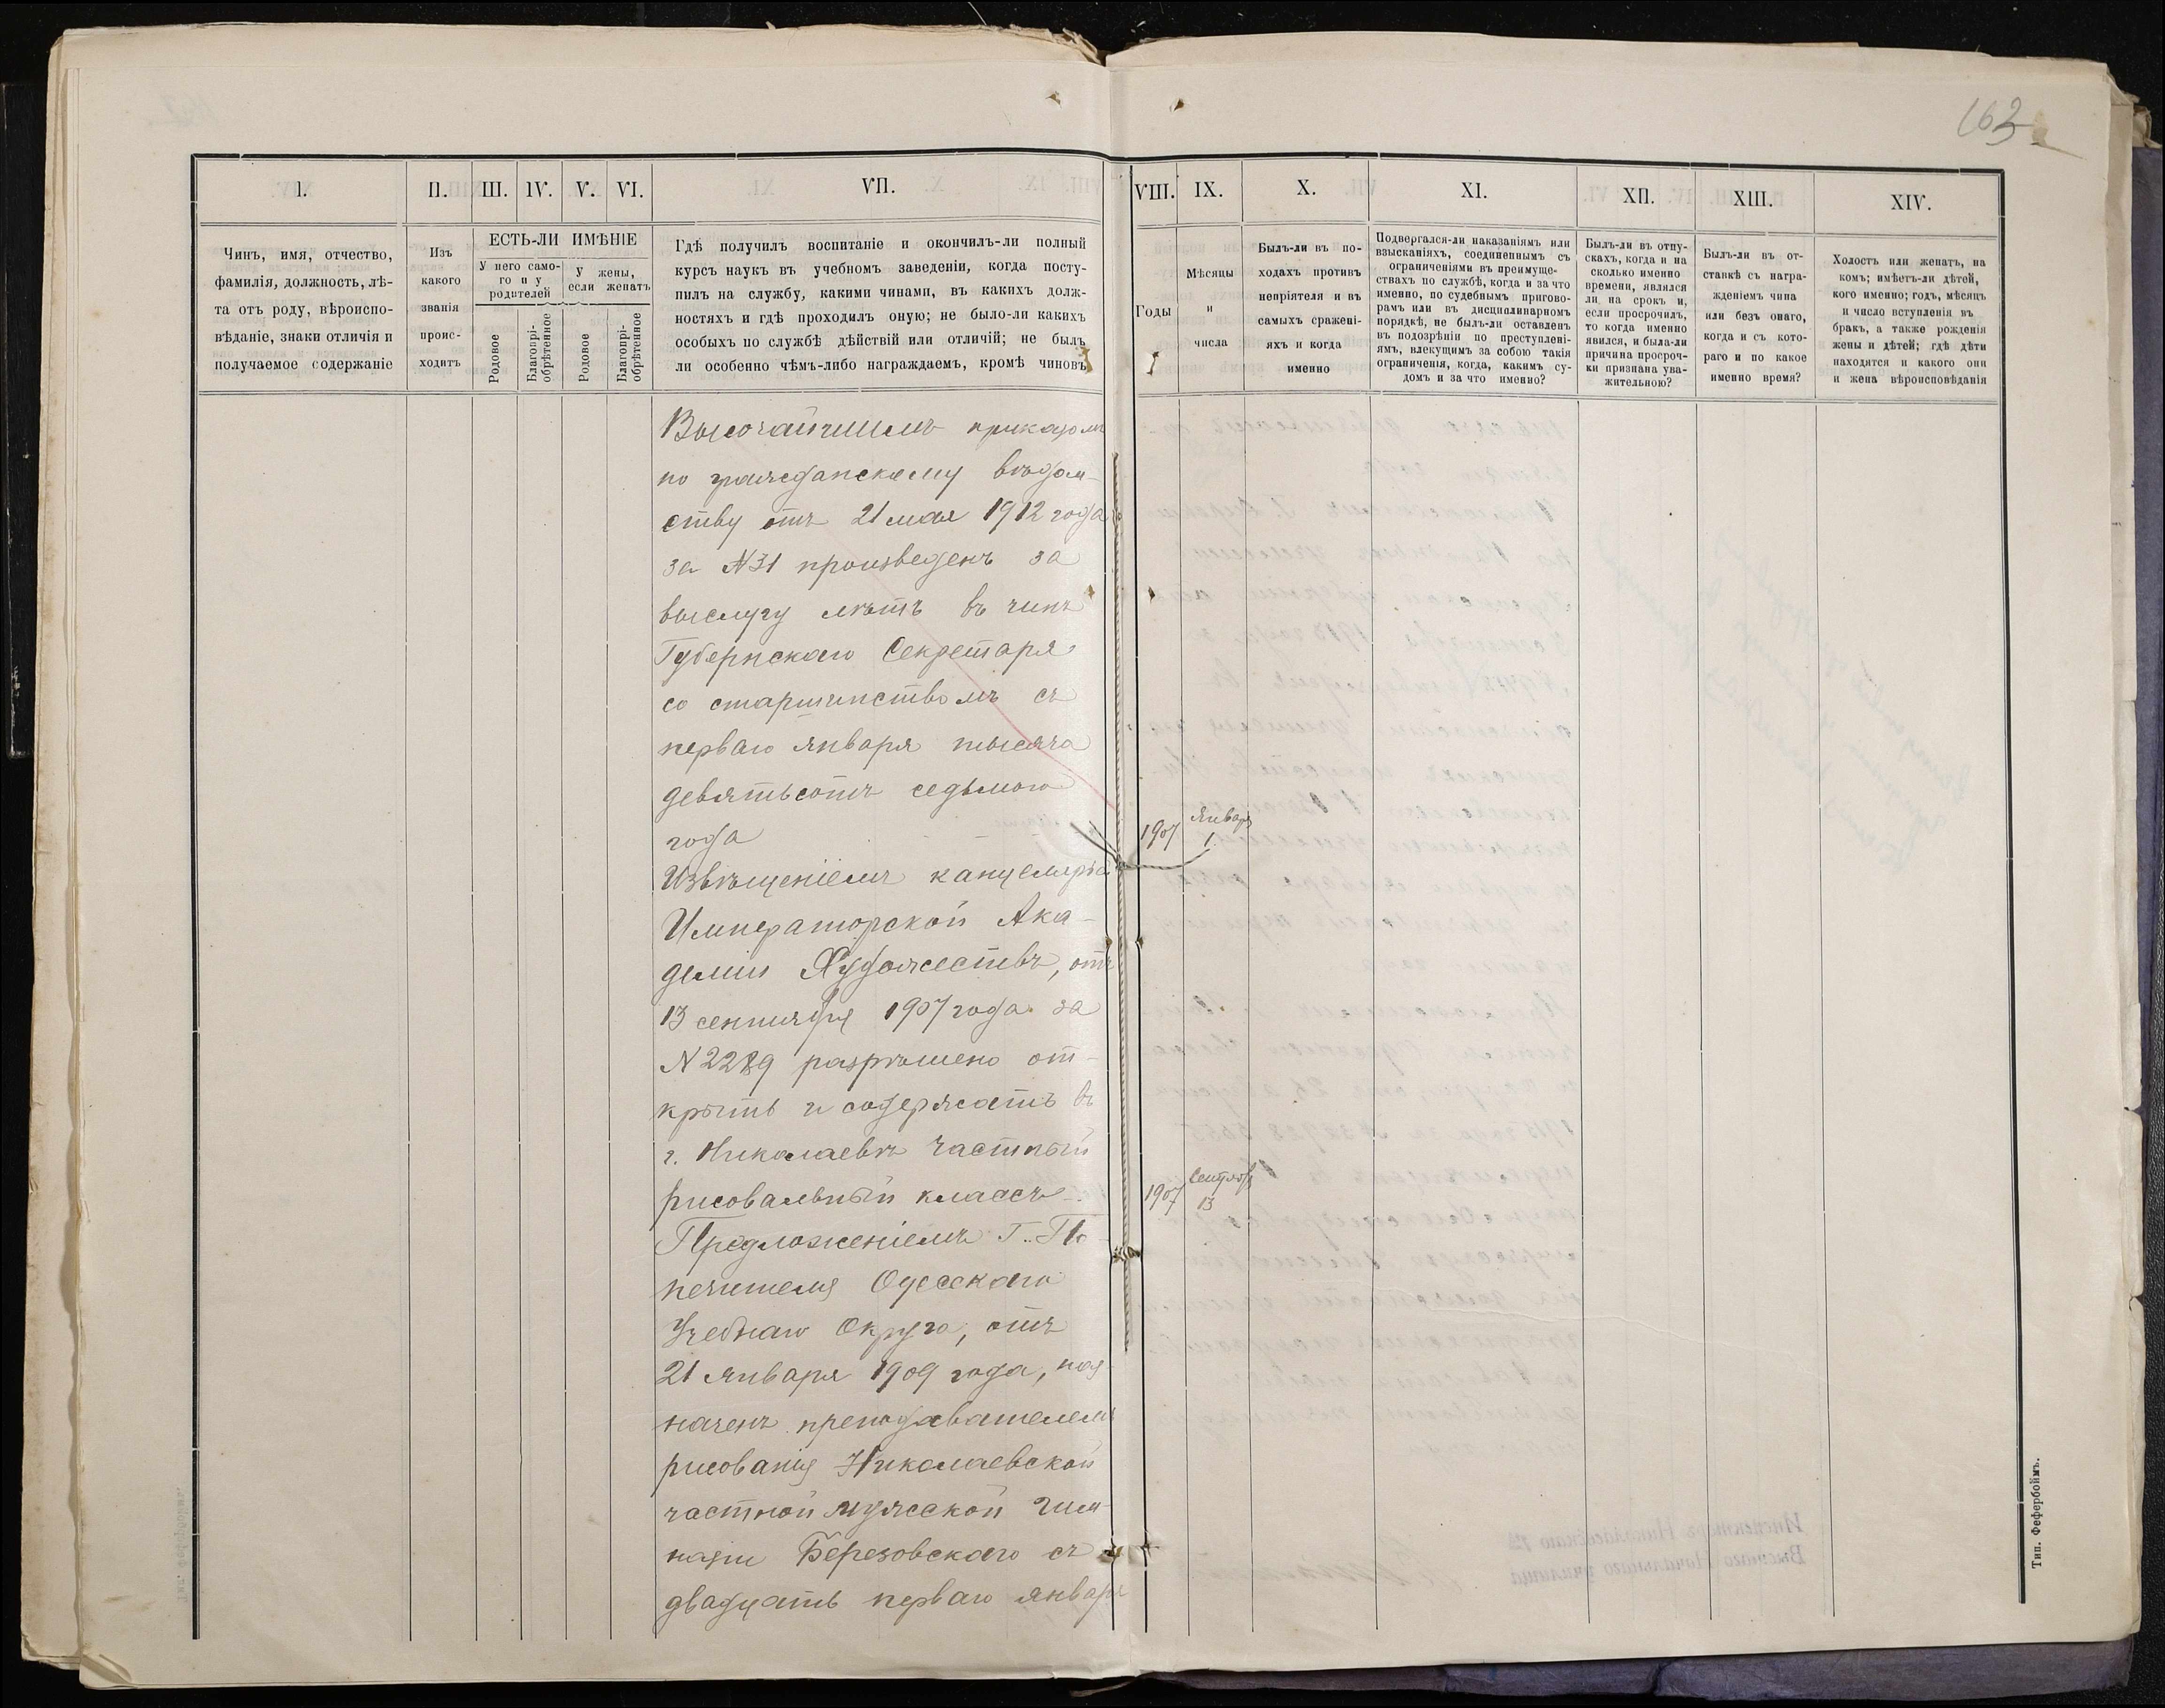 163
I.
II.
III.
IV.
V.
VI.
VII.
VIII.
IX.
X.
XI.
XII.
XIII.
XIV.
Чинъ, имя, отчество,
фамилія, должность, лѣ-
та отъ роду, вѣроиспо-
вѣданіе, знаки отличія и
получаемое содержаніе
Изъ
какого
званія
проис-
ходитъ
ЕСТЬ-ЛИ ИМѢНІЕ
У него само-
го и у
родителей
У жены,
если женатъ
Родовое
Благопрі-
обрѣтенное
Родовое
Благопрі-
обрѣтенное
Гдѣ получилъ воспитаніе и окончилъ-ли полный
курсъ наукъ въ учебномъ заведеніи, когда посту-
пилъ на службу, какими чинами, въ какихъ долж-
ностяхъ и гдѣ проходилъ оную; не было-ли какихъ
особыхъ по службѣ дѣйствій или отличій; не былъ
ли особенно чѣмъ-либо награждаемъ, кромѣ чиновъ
Годы
Мѣсяцы
и
числа
Былъ-ли въ по-
ходахъ противъ
непріятеля и въ
самыхъ сражені-
яхъ и когда
именно
Подвергался-ли наказаніямъ или
взысканіяхъ, соединеннымъ съ
ограниченіями въ преимуще-
ствахъ по службѣ, когда и за что
именно, по судебнымъ пригово-
рамъ или въ дисциплинарномъ
порядкѣ, не былъ-ли оставленъ
въ подозрѣніи по преступлені-
ямъ, влекущимъ за собою такія
ограниченія, когда, какимъ су-
домъ и за что именно?
Былъ-ли въ отпу-
скахъ, когда и на
сколько именно
времени, являлся
ли на срокъ и,
если просрочилъ,
то когда именно
явился, и была-ли
причина просроч-
ки признана ува-
жительною?
Былъ-ли въ от-
ставкѣ съ награ-
жденіемъ чина
или безъ онаго,
когда и съ кото-
раго и по какое
именно время?
Холостъ или женатъ, на
комъ; имѣетъ-ли дѣтей,
кого именно; годъ, мѣсяцъ
и число вступленія въ
бракъ, а также рожденія
жены и дѣтей; гдѣ дѣти
находятся и какого они
и жена вѣроисповѣданія
Высочайшимъ приказомъ
по гражданскому вѣдом-
ству отъ 21 мая 1912 года
за №31 произведенъ за
выслугу лѣтъ въ чинъ
Губернскаго Секретаря
со старшинствомъ съ
перваго января тысяча
девятьсотъ седьмого
года
1907 Января 1.
Извѣщеніемъ канцеляріи
Императорской Ака-
деміи Художествъ, отъ
13 сентября 1907 года за
№2289 разрѣшено от-
крыть и содержать въ
г. Николаевѣ частный
рисовальный классъ.
1907 Сентября 13
Предложеніемъ Г. По-
печителя Одесскаго
Учебнаго Округа, отъ
21 января 1909 года, наз-
наченъ преподавателемъ
рисованія Николаевской
частной мужской гим-
назіи Березовскаго съ
двадцать перваго января
Тип. Фефербоймъ.